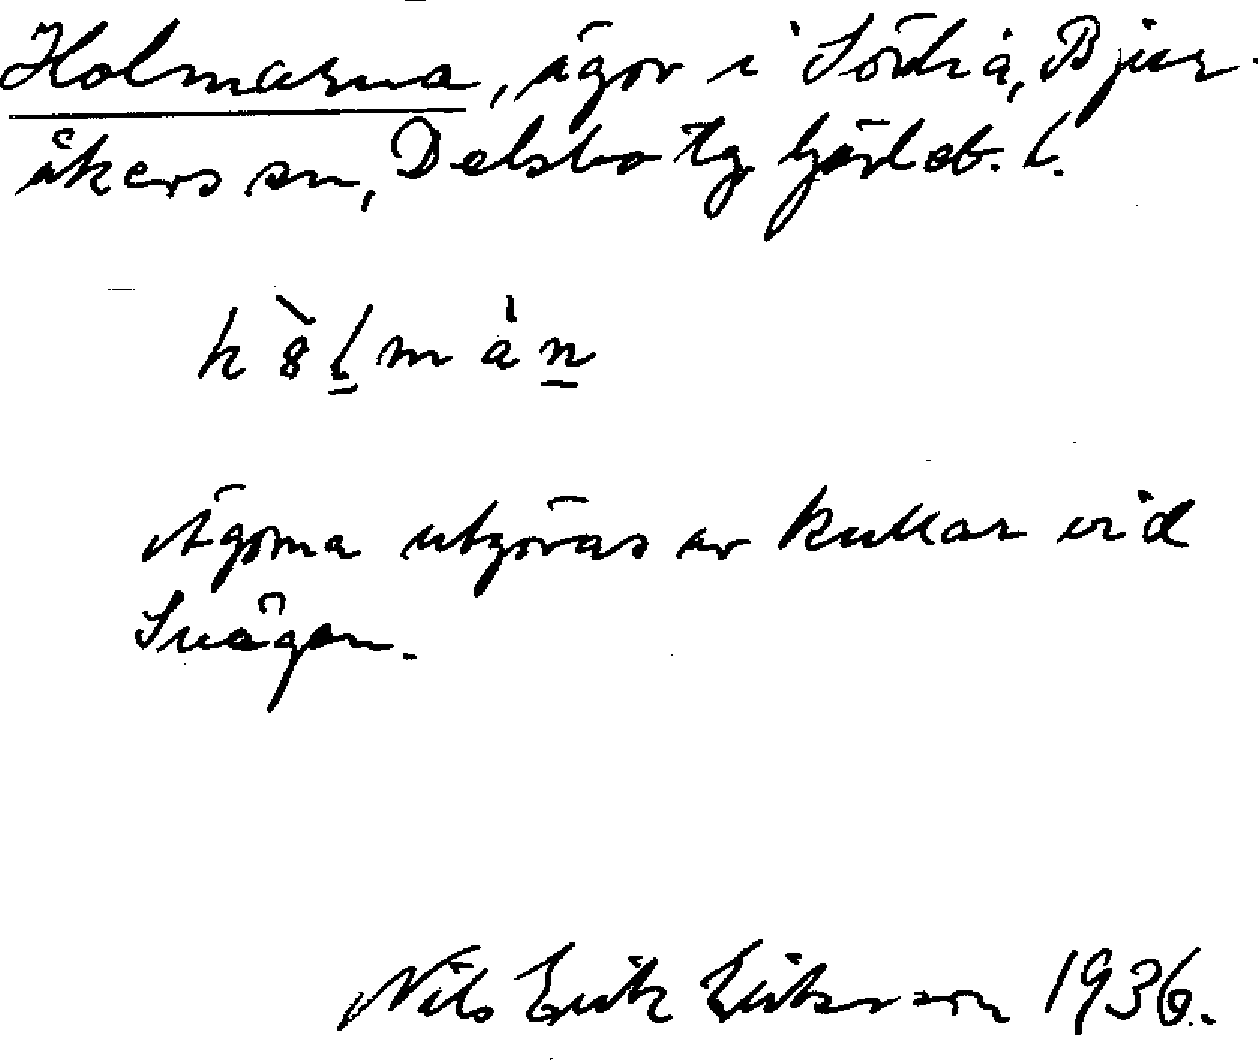 Holmarna, ägor i Södra, Bjur-
åkers sn, Delsbo tg
h ò l m à n
Ägorna utgöras av kullar vid
Svågan.
Nils Erik Eriksson 1936.